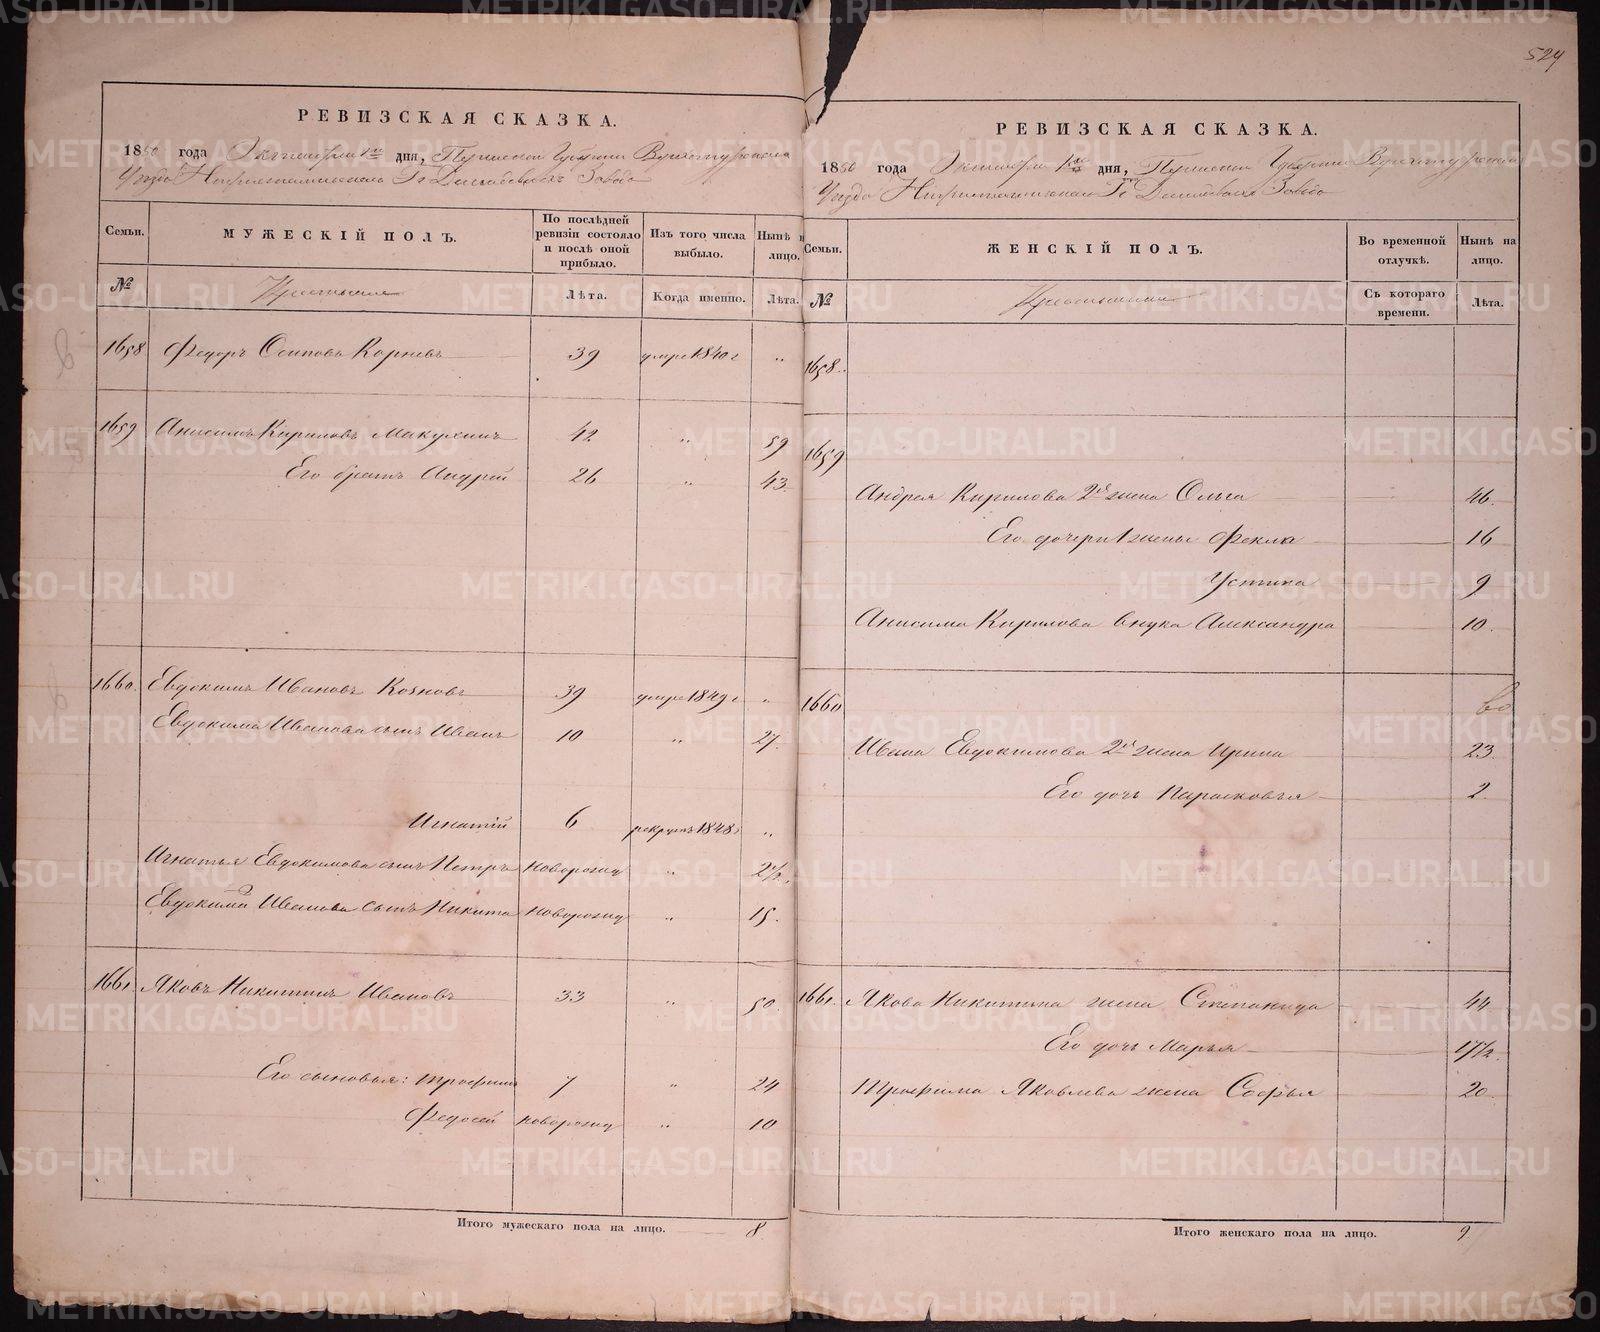 524
РЕВИЗСКАЯ СКАЗКА.
1850 года Октября 1го дня, Пермской Губернии Верхотурскаго
Уезда Нижнетагильскаго Гг Демидовыхъ Завода
Семьи. МУЖЕСКІЙ ПОЛЪ. По послѣдней ревизіи состояло и послѣ оной прибыло. Изъ того числа выбыло. Нынѣ на лицо.
№ Крестьяне Лѣта. Когда именно. Лѣта.
1658 Федоръ Осиповъ Корневъ 39 умре 1840 г „
1659 Анисимъ Кириловъ Макухинъ 42 „ 59
Его братъ Андрей 26 „ 43.
1660. Евдокимъ Ивановъ Козновъ 39 умре 1849 г „
Евдокима Иванова сынъ Иванъ 10 „ 27.
Игнатій 6 рекрутъ 1848 г „
Игнатья Евдокимова сынъ Петръ новорожд „ 2 1/2.
Евдокима Иванова 2 сынъ Никита новорожд „ 15.
1661. Яковъ Никитинъ Ивановъ 33 „ 50.
Его сыновья: Трофимъ 7 „ 24
Федосей новорожд „ 10
Итого мужескаго пола на лицо. 8
РЕВИЗСКАЯ СКАЗКА.
1850 года Октября 1го дня, Пермской Губернии Верхотурскаго
Уезда Нижнетагильскаго Гг Демидовыхъ Завода
Семьи. ЖЕНСКІЙ ПОЛЪ. Во временной отлучкѣ. Нынѣ на лицо.
№ Крестьянки Съ котораго времени. Лѣта.
1658.
1659
Андрея Кирилова 2я жена Ольга 46.
Его дочери 1 жены Фекла 16
Устина 9
Анисима Кирилова внука Александра 10.
1660
Ивана Евдокимова 2я жена Ирина 23.
Его дочь Парасковья 2.
1661. Якова Никитина жена Степанида 44
Его дочь Марья 17 1/2.
Трофима Яковлева жена Софья 20.
Итого женскаго пола на лицо. 9
METRIKI.GASO-URAL.RU